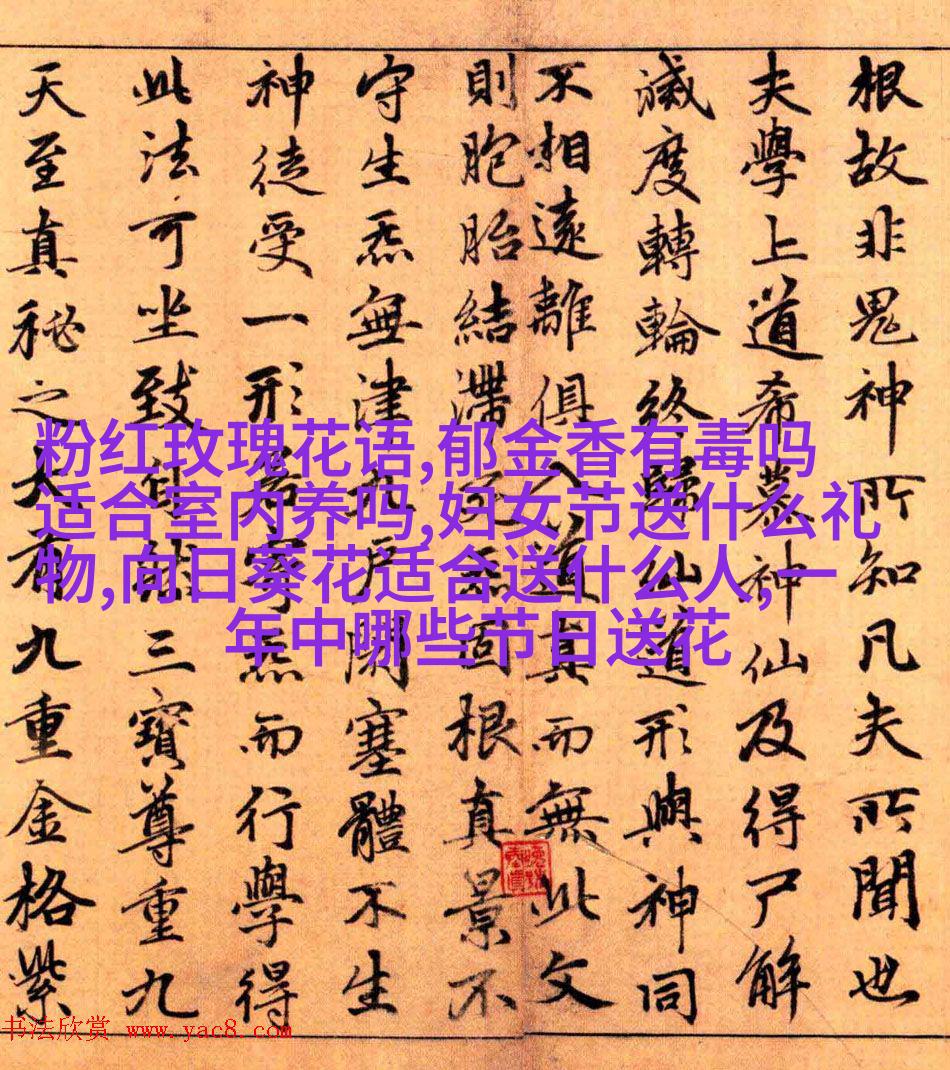 根故非鬼神所知凡夫所聞也
夫學上道希慕神仙及得尸解
滅度轉輪終歸仙道形與神同
不相遠離俱入道真而無此文
則胞胎結滯死炁固根真景不
守生炁無津九戶閇塞體不生
神徒受一形若寄炁而行學得
此法可坐致自然三寶尊重九
天至真秘之大有九重金格紫
粉红玫瑰花语,郁金香有毒吗
适合室内养吗,妇女节送什么礼
物,向日葵花适合送什么人,一
年中哪些节日送花
书法欣赏 www.yac8.com